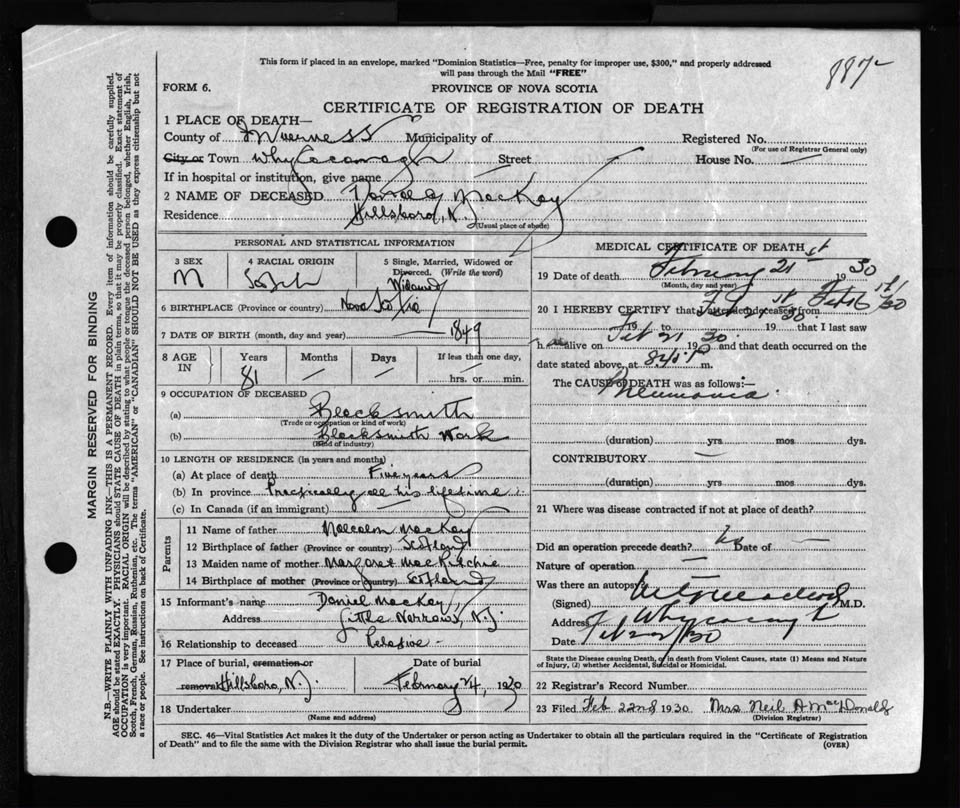 This form if placed in an envelope, marked "Dominion Statistics—Free, penalty for improper use, $300," and properly addressed
will pass through the Mail "FREE"
887
FORM 6.
PROVINCE OF NOVA SCOTIA
CERTIFICATE OF REGISTRATION OF DEATH
1 PLACE OF DEATH—
County of Inverness Municipality of Registered No.
(For use of Registrar General only)
City or Town Whycocomagh Street House No. —
If in hospital or institution, give name —
2 NAME OF DECEASED MacKay
Residence Hillsboro, N.S.
(Usual place of abode)
PERSONAL AND STATISTICAL INFORMATION
3 SEX 4 RACIAL ORIGIN 5 Single, Married, Widowed or Divorced. (Write the word)
M Scotch Widowed
6 BIRTHPLACE (Province or country) Nova Scotia
7 DATE OF BIRTH (month, day and year) 1849
8 AGE IN Years Months Days If less than one day,
81 — — — hrs. or min.
9 OCCUPATION OF DECEASED
(a) Blacksmith
(Trade or occupation or kind of work)
(b) Blacksmith Work
(Kind of industry)
10 LENGTH OF RESIDENCE (In years and months)
(a) At place of death Five years
(b) In province Practically all his lifetime
(c) In Canada (if an immigrant) —
Parents
11 Name of father Malcolm MacKay
12 Birthplace of father (Province or country) Scotland
13 Maiden name of mother Margaret MacRitchie
14 Birthplace of mother (Province or country) Scotland
15 Informant's name Daniel MacKay
Address Little Narrows, N.S.
16 Relationship to deceased Relative
17 Place of burial, cremation or Date of burial
removal Hillsboro, N.S. February 24, 1930
18 Undertaker
(Name and address)
MEDICAL CERTIFICATE OF DEATH
19 Date of death February 21st 1930
(Month, day and year)
20 I HEREBY CERTIFY that I attended deceased from Feb 16th/30
19 to 19 that I last saw
h alive on Feb 21 1930 and that death occurred on the
date stated above, at P m.
The CAUSE of DEATH was as follows:—
Pneumonia
(duration) yrs mos dys.
CONTRIBUTORY —
(duration) yrs mos dys.
21 Where was disease contracted if not at place of death?
Did an operation precede death? No Date of —
Nature of operation —
Was there an autopsy
(Signed) M.D.
Address Whycocomagh
Date Feb 22/30
State the Disease causing Death, or in death from Violent Causes, state (1) Means and Nature
of Injury, (2) whether Accidental, Suicidal or Homicidal.
22 Registrar's Record Number
23 Filed Feb 22nd 1930 Mrs Neil A MacDonald
(Division Registrar)
SEC. 46—Vital Statistics Act makes it the duty of the Undertaker or person acting as Undertaker to obtain all the particulars required in the "Certificate of Registration
of Death" and to file the same with the Division Registrar who shall issue the burial permit.
(OVER)
MARGIN RESERVED FOR BINDING
N.B.—WRITE PLAINLY WITH UNFADING INK—THIS IS A PERMANENT RECORD. Every item of information should be carefully supplied.
AGE should be stated EXACTLY. PHYSICIANS should STATE CAUSE OF DEATH in plain terms, so that it may be properly classified. Exact statement of
OCCUPATION is very important. RACIAL ORIGIN will be described by stating to what people or tongue the deceased person belonged, whether English, Irish,
Scotch, French, German, Russian, Ruthenian, etc. The terms "AMERICAN" or "CANADIAN" SHOULD NOT BE USED as they express citizenship but not
a race or people. See instructions on back of Certificate.